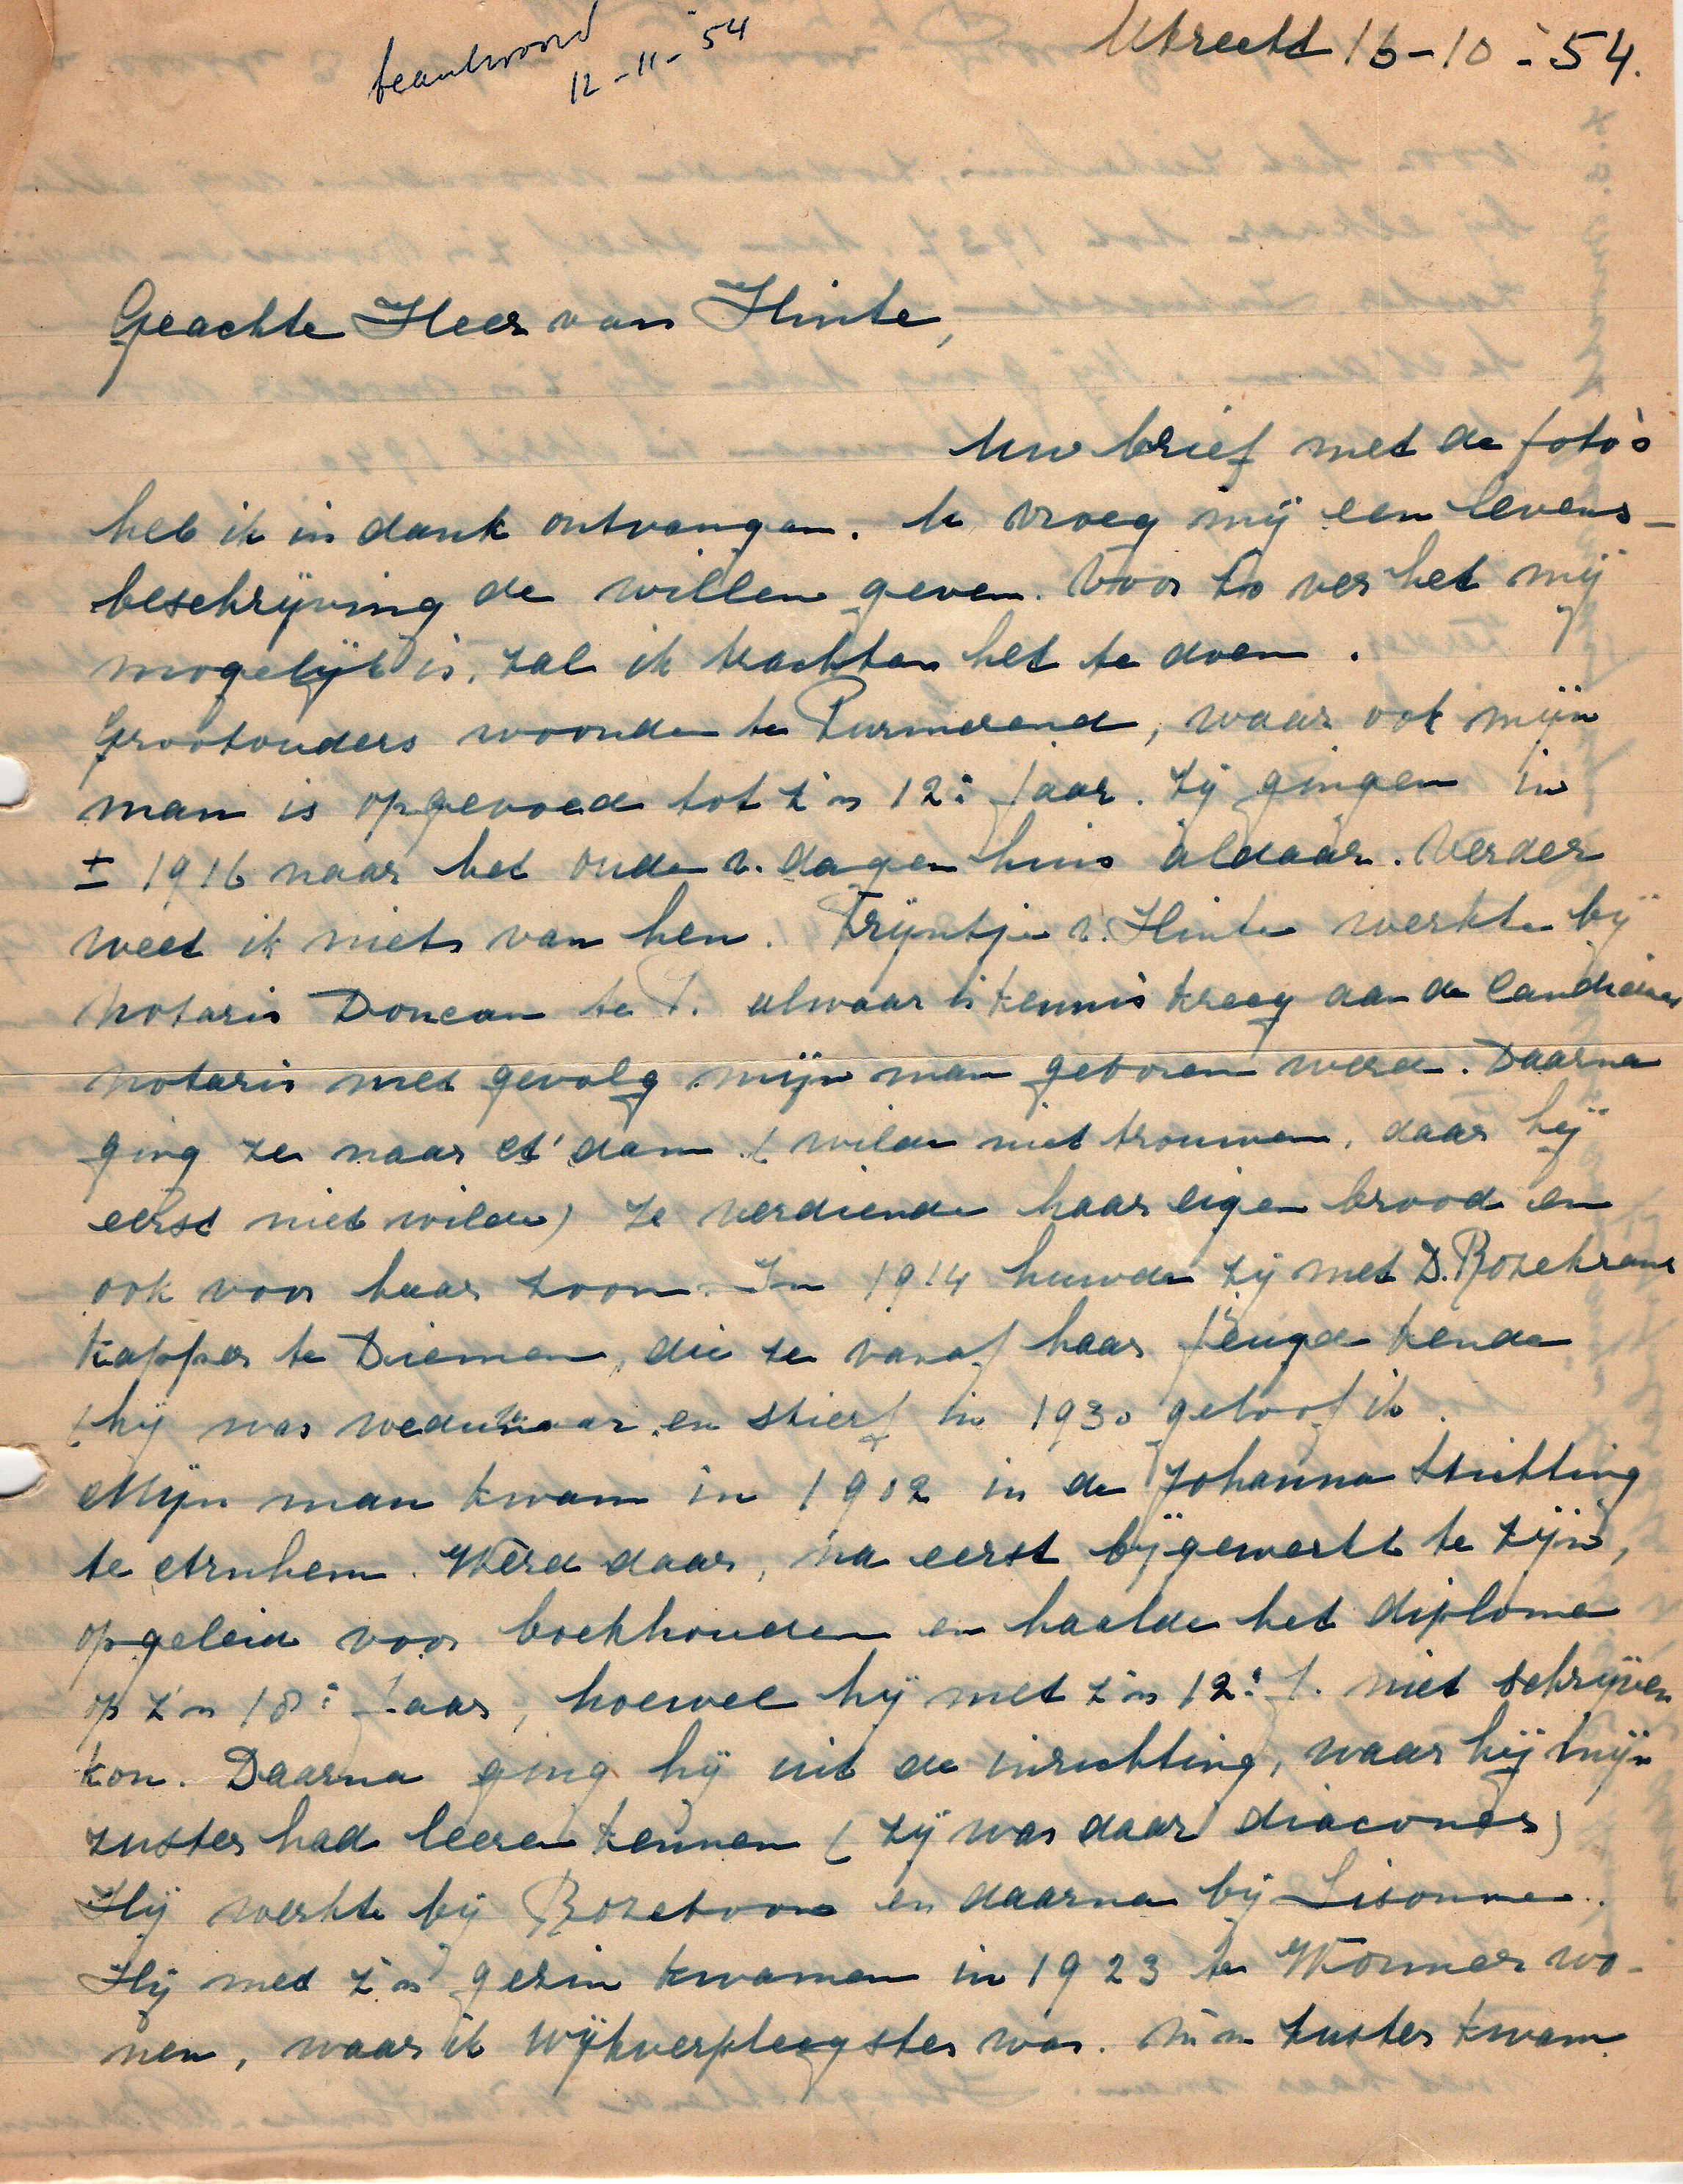 beantwoord
12-11-'54
Utrecht 16-10-'54.
Geachte Heer van Hinte,
Uw brief met de foto's
heb ik in dank ontvangen. U vroeg mij een levens-
beschrijving de willen geven. Voor zo ver het mij
mogelijk is, zal ik trachten het te doen.
Grootouders woonden te Purmerend, waar ook mijn
man is opgevoed tot z'n 12e jaar. Zij gingen in
± 1916 naar het oude v. dagen huis aldaar. Verder
weet ik niets van hen. Trijntje v. Hinte werkte bij
Notaris Doncan te P. alwaar kennis kreeg aan de Candidaat
notaris met gevolg mijn man geboren werd. Daarna
ging ze naar A'dam (wilde niet trouwen, daar hij
eerst niet wilde) Ze verdiende haar eigen brood en
ook voor haar zoon. In 1914 huwde zij met D. Rozekrans
kapper te Diemen, die ze vanaf haar jeugd kende
(hij was weduwnaar en stierf in 1930 geloof ik.
Mijn man kwam in 1902 in de Johanna Stichting
te Arnhem. Werd daar, na eerst bijgewerkt te zijn,
opgeleid voor boekhouden en haalde het diploma
op z'n 18e jaar, hoewel hij met z'n 12e j. niet schrijven
kon. Daarna ging hij uit de inrichting, waar hij mijn
zuster had leeren kennen (zij was daar diacones)
Hij werkte bij Rozeboom en daarna bij Lisonne.
Hij met z'n gezin kwamen in 1923 te Wormer wo-
nen, waar ik wijkverpleegster was. M'n zuster kwam